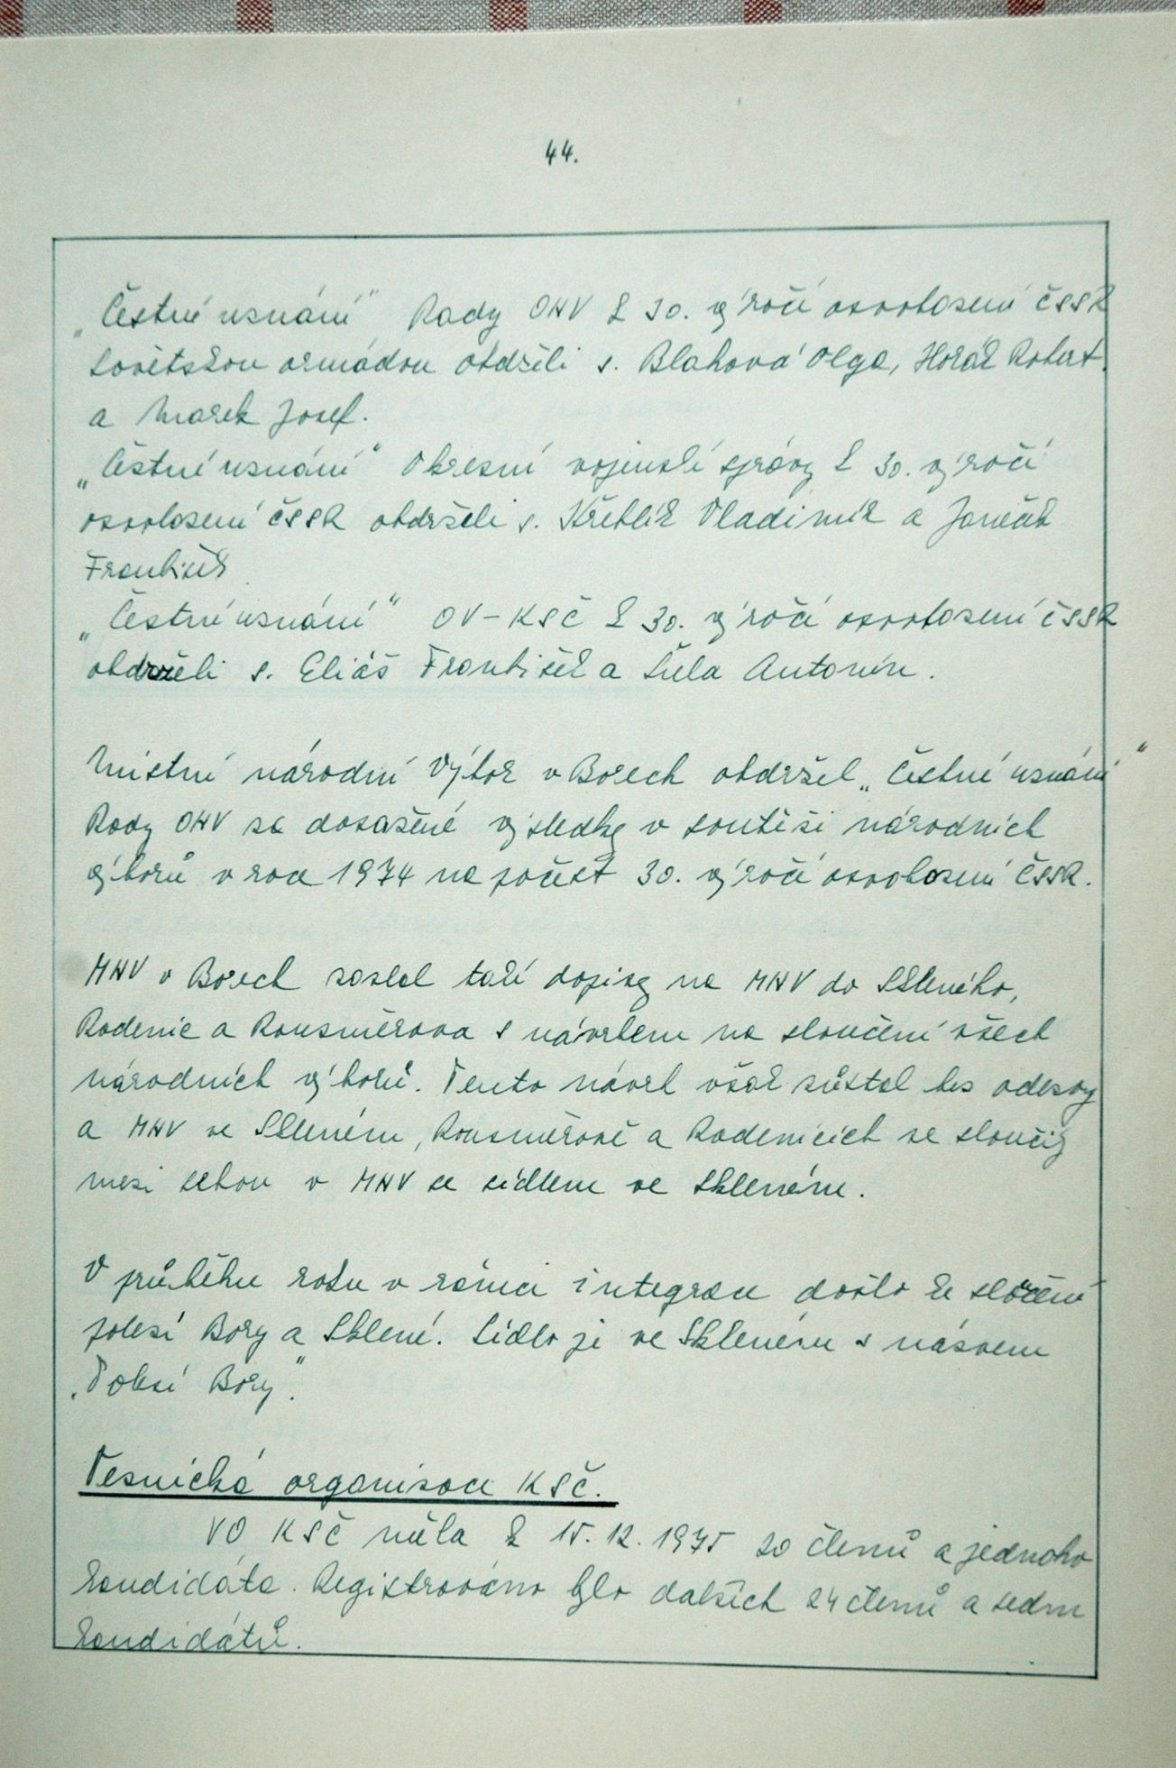 44.
„Čestné uznání" Rady ONV k 30. výročí osvobození ČSSR
Sovětskou armádou obdrželi s. Blahová Olga, Horák Robert
a Marek Josef.
„Čestné uznání" Okresní vojenské správy k 30. výročí
osvobození ČSSR obdrželi s. Vladimír a
František
„Čestné uznání" OV-KSČ k 30. výročí osvobození ČSSR
obdrželi s. Eliáš František a Antonín.
Místní národní výbor v Borech obdržel „Čestné uznání"
Rady ONV za dosažené výsledky v soutěži národních
výborů v roce 1974 na počest 30. výročí osvobození ČSSR.
MNV v Borech zaslal také dopisy na MNV do Skleného,
Radenic a Rousměrova s návrhem na sloučení všech
národních výborů. Tento návrh však zůstal bez odezvy
a MNV ve Skleném, Rousměrově a Radenicích se sloučily
mezi sebou v MNV se sídlem ve Skleném.
V průběhu roku v rámci integrace došlo ke sloučení
polesí Bory a Sklené. Sídlo je ve Skleném s názvem
„Polesí Bory".
Vesnická organizace KSČ.
VO KSČ měla k 15.12.1975 20 členů a jednoho
kandidáta. Registrováno bylo dalších 24 členů a sedm
kandidátů.